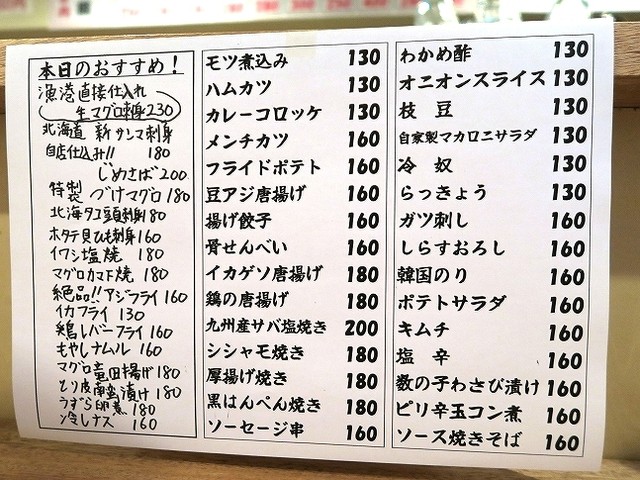 本日のおすすめ!
漁港直接仕入れ
生マグロ刺身230
北海道 新サンマ刺身
自店仕込み!! 180
じめさば200
特製 づけマグロ180
北海タコ頭刺身180
ホタテ貝ひも刺身160
イワシ塩焼 180
マグロカマ下焼 180
絶品!!アジフライ160
イカフライ 130
鶏レバーフライ160
もやしナムル 160
マグロ竜田揚げ180
とり皮南蛮漬け180
うずら卵煮 180
冷しナス 160
モツ煮込み 130
ハムカツ 130
カレーコロッケ 130
メンチカツ 160
フライドポテト 160
豆アジ唐揚げ 160
揚げ餃子 160
骨せんべい 160
イカゲソ唐揚げ 180
鶏の唐揚げ 180
九州産サバ塩焼き 200
シシャモ焼き 180
厚揚げ焼き 180
黒はんぺん焼き 180
ソーセージ串 160
わかめ酢 130
オニオンスライス 130
枝 豆 130
自家製マカロニサラダ 130
冷 奴 130
らっきょう 130
ガツ刺し 160
しらすおろし 160
韓国のり 160
ポテトサラダ 160
キムチ 160
塩 辛 160
数の子わさび漬け 160
ピリ辛玉コン煮 160
ソース焼きそば 160